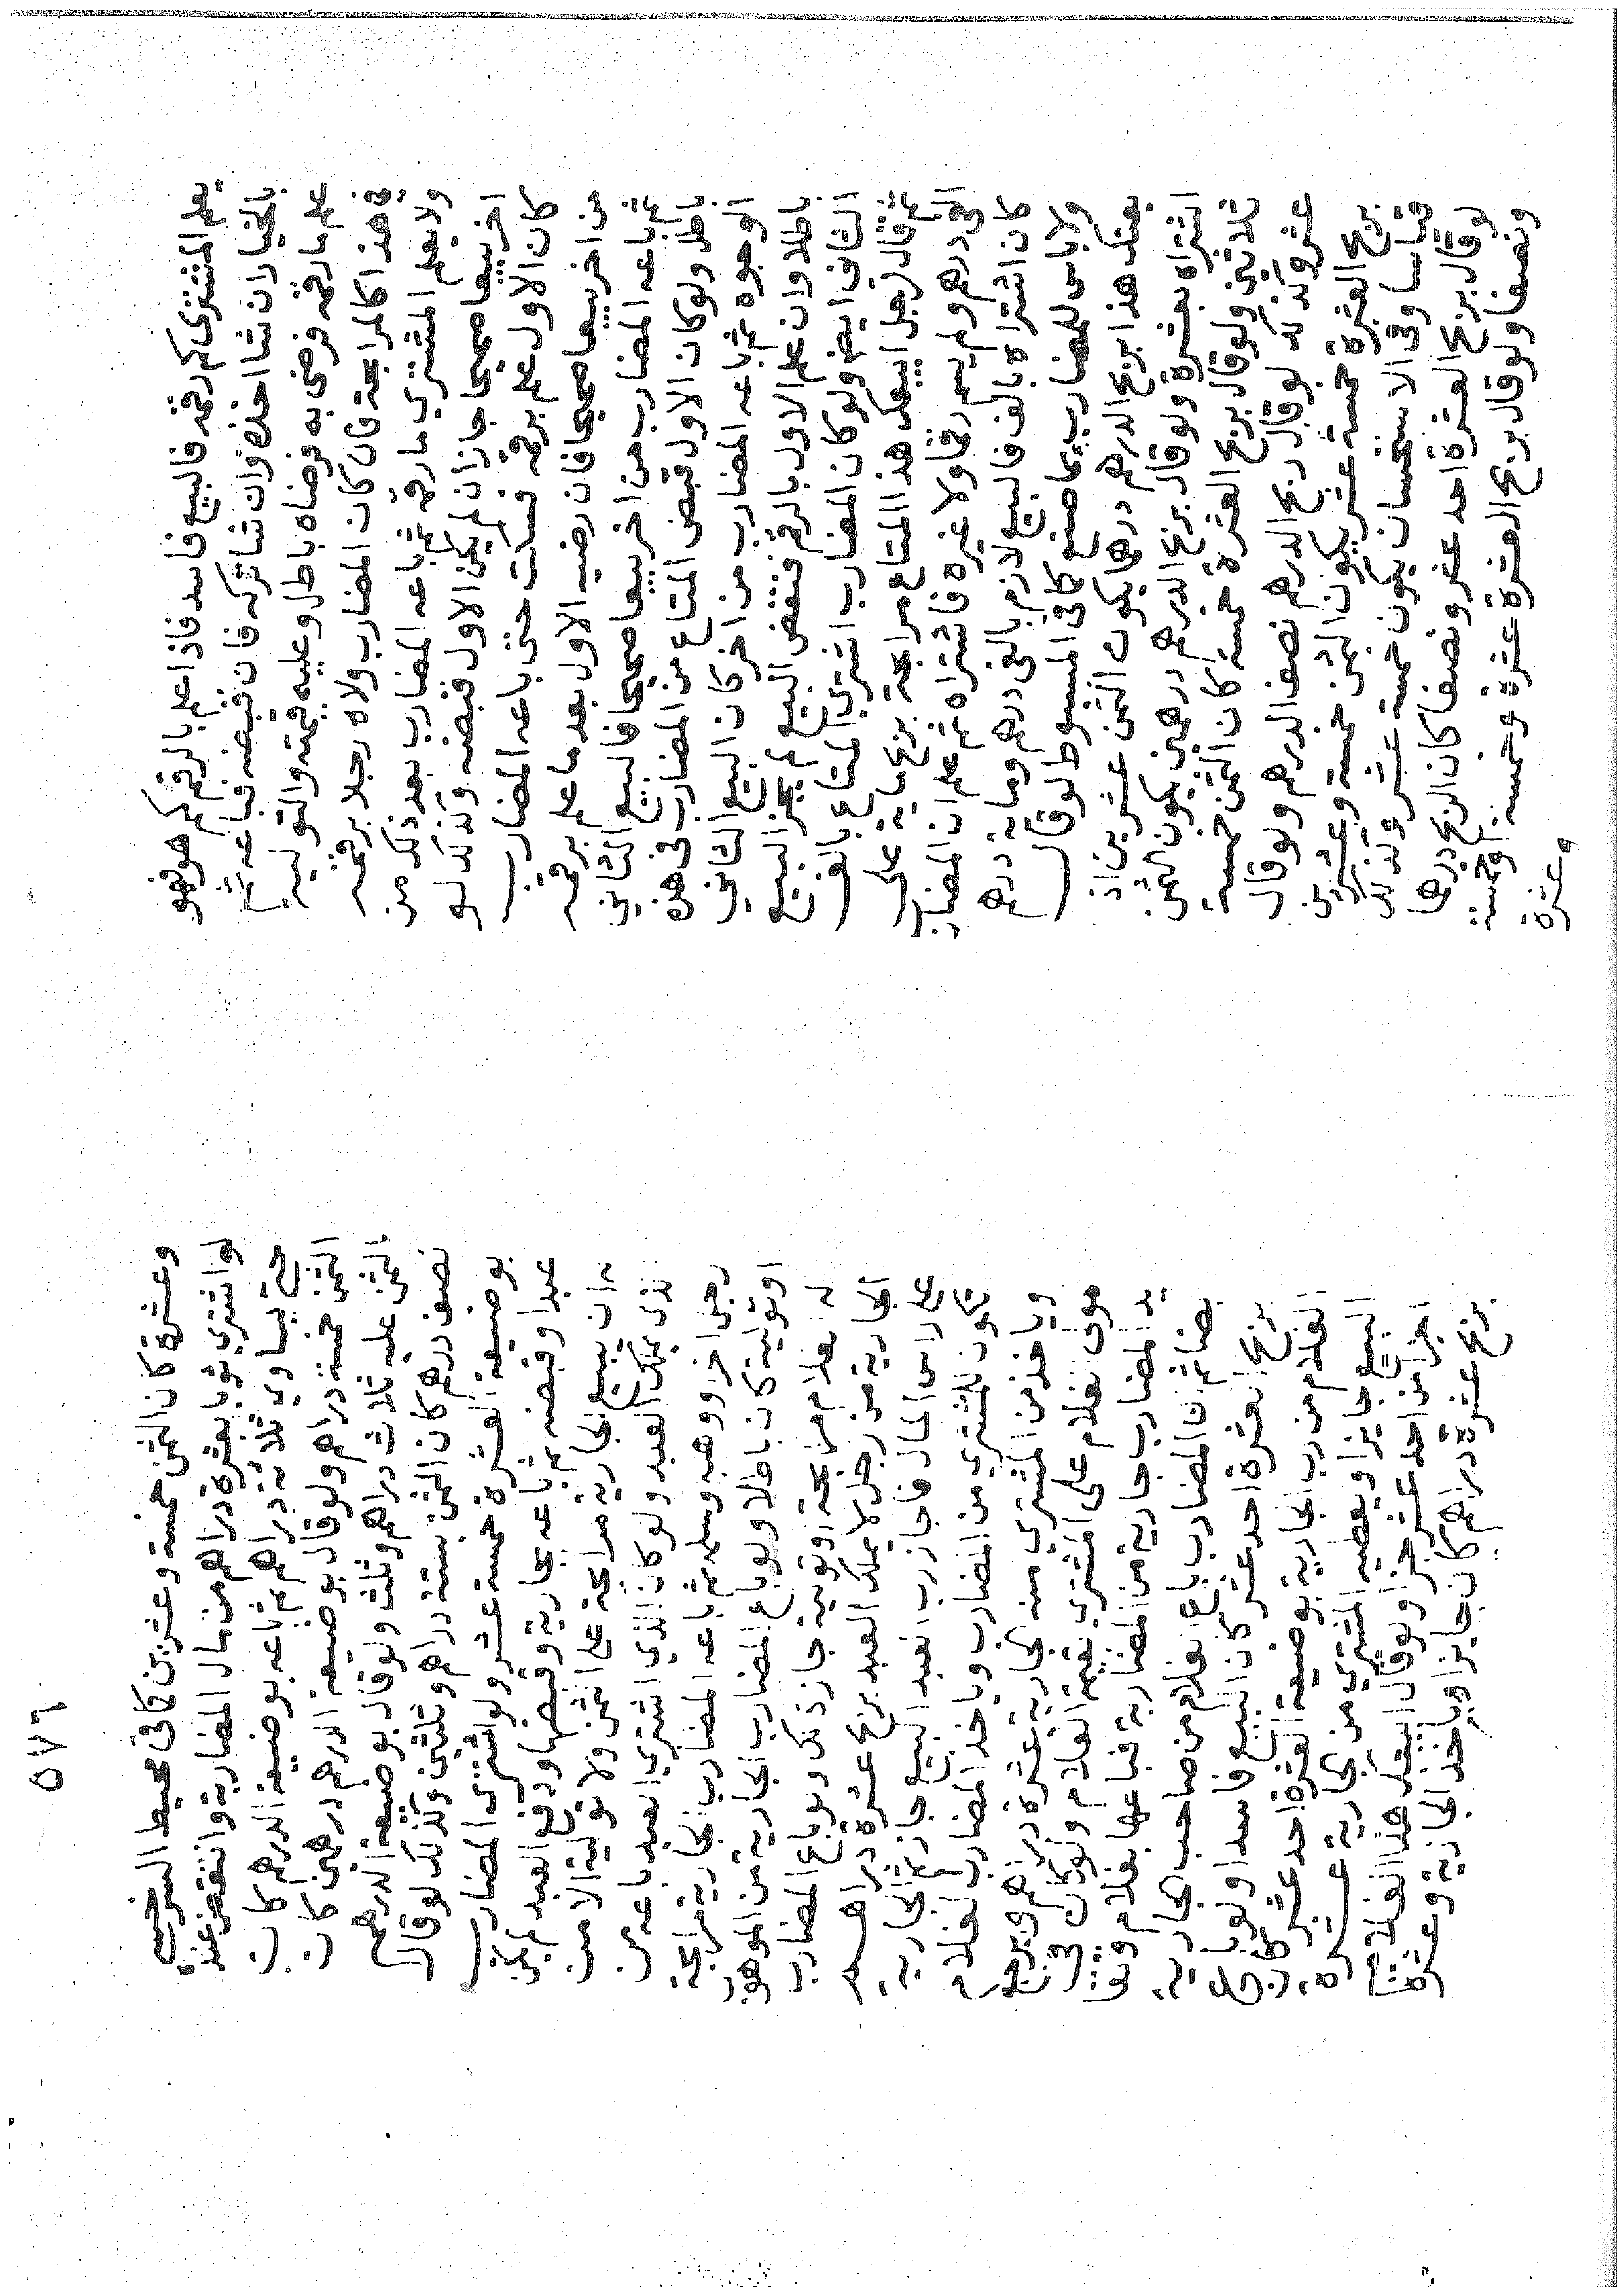 يعلم المشترى كم رقمه فالبيع فاسد فاذا علم بالرقم كم هو فهو
بالخيار ان شا اخذه وان شا تركه فان قبضه فباعه ثم
علم ما رقمه فرضى به فرضاه باطل وعليه قيمته والتولية
فى هذا كالمرابحة فان كان المضارب ولاه رجلا برقمه
ولا يعلم المشتري ما رقمه ثم باعه المضارب بعد ذلك من
اخر بيعا صحيحا جاز ان لم يكن الاول قبضه وكذلك لو
كان الاول علم برقمه فسكت حتى باعه المضارب
من اخر بيعا صحيحا فان رضيه الاول بعد ما علم برقمه
ثم باعه المضارب من اخر بيعا صحيحا فالبيع الثاني
باطل ولو كان الاول قبض المتاع من المضارب فى هذه
الوجوه ثم باعه المضارب من اخر كان البيع الثانى
باطلا وان علم الاول بالرقم فنقض البيع لم يجز البيع
الثانى ايضا ولو كان المضارب اشترى المتاع بالف
ثم قال لرجل ابيعك هذا المتاع مرابحة بربح ماية على
الفى درهم ولم يسم رقما ولا غيره فاشتراه ثم علم ان المضارب
كان اشتراه بالف فالبيع لازم بالفى درهم وماية درهم
ولا باس للمضارب بما صنع كما فى المبسوط لو قال
بعتك هذا بربح الدرهم درهما يكون الثمن عشرين اذ
اشتراه بعشرة ولو قال بربح الدرهم درهمين يكون الثمن
ثلاثين ولو قال بربح العشرة خمسة كان الثمن خمسة
عشر وكذلك لو قال ربح الدرهم نصف الدرهم ولو قال
بربح العشرة خمسة عشر يكون الثمن خمسة وعشرين
قياسا وفى الاستحسان يكون خمسة عشر وكذلك
لو قال بربح العشرة احد عشر ونصفا كان الربح درهما
ونصفا ولو قال بربح العشرة عشرة وخمسة او خمسة
وعشرة
٥٧٦
وعشرة كان الثمن خمسة وعشرين كما فى محيط السرخسى
لو اشتري ثوبا بعشرة دراهم من مال المضاربة وانتقض عنده
حتى يساوي ثلاثة دراهم ثم باعه بوضيعة الدرهم كان
الثمن خمسة دراهم ولو قال بوضيعة الدرهم درهمين كان
الثمن عليه ثلاث دراهم وثلث ولو قال بوضيعة الدرهم
نصف درهم كان الثمن ستة دراهم وثلثين وكذلك لو قال
بوضيعة العشرة خمسة عشر ولو اشترى المضارب
عبدا وقبضه ثم باعه بجارية وقبضها ودفع العبد لم يكن
له ان يبيع الجارية مرابحة على الثمن ولا تولية الا من
الذي يملك العبد ولو كان الذي اشتري العبد باعه من
رجل اخر او وهبه وسلمه ثم باعه المضارب الجارية مرابحة
او تولية كان باطلا ولو باع المضارب الجارية من الموهوب
له بغلام مرابحة او تولية جاز ذلك ولو باع المضارب
الجارية من رجل لا يملك العبد بربح عشرة دراهم
على راس المال فاجاز رب العبد البيع جاز ثم الجارية
تكون للمشتري من المضارب وياخذ المضارب الغلام
وياخذ من المشتري منه الجارية عشرة دراهم ويرجع
مولى الغلام على المشتري بقيمة الغلام ولو كان فى
يد المضارب جارية من المضاربة فباعها بغلام وتقا
بضا ثم ان المضارب باع الغلام من صاحب الجارية
بربح العشرة احد عشر كان البيع فاسدا ولو باع
الغلام من رب الجارية بوضيعة العشرة احد عشر كان
البيع جايزا ويعطيه المشتري من الجارية عشرة
اجزا من احد عشر جزا ولو قال ابيعك هذا الغلام
بربح عشرة دراهم كان جايزا وياخذ الجارية وعشرة